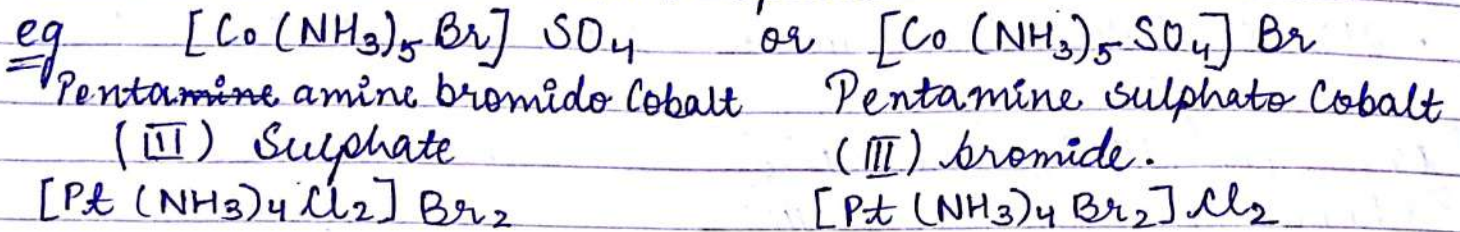 eg [Co(NH3)5Br] SO4 or [Co(NH3)5SO4] Br
Pentamine amine bromido Cobalt Pentamine sulphato Cobalt
(III) Sulphate (III) bromide.
[Pt (NH3)4 Cl2] Br2 [Pt (NH3)4 Br2] Cl2